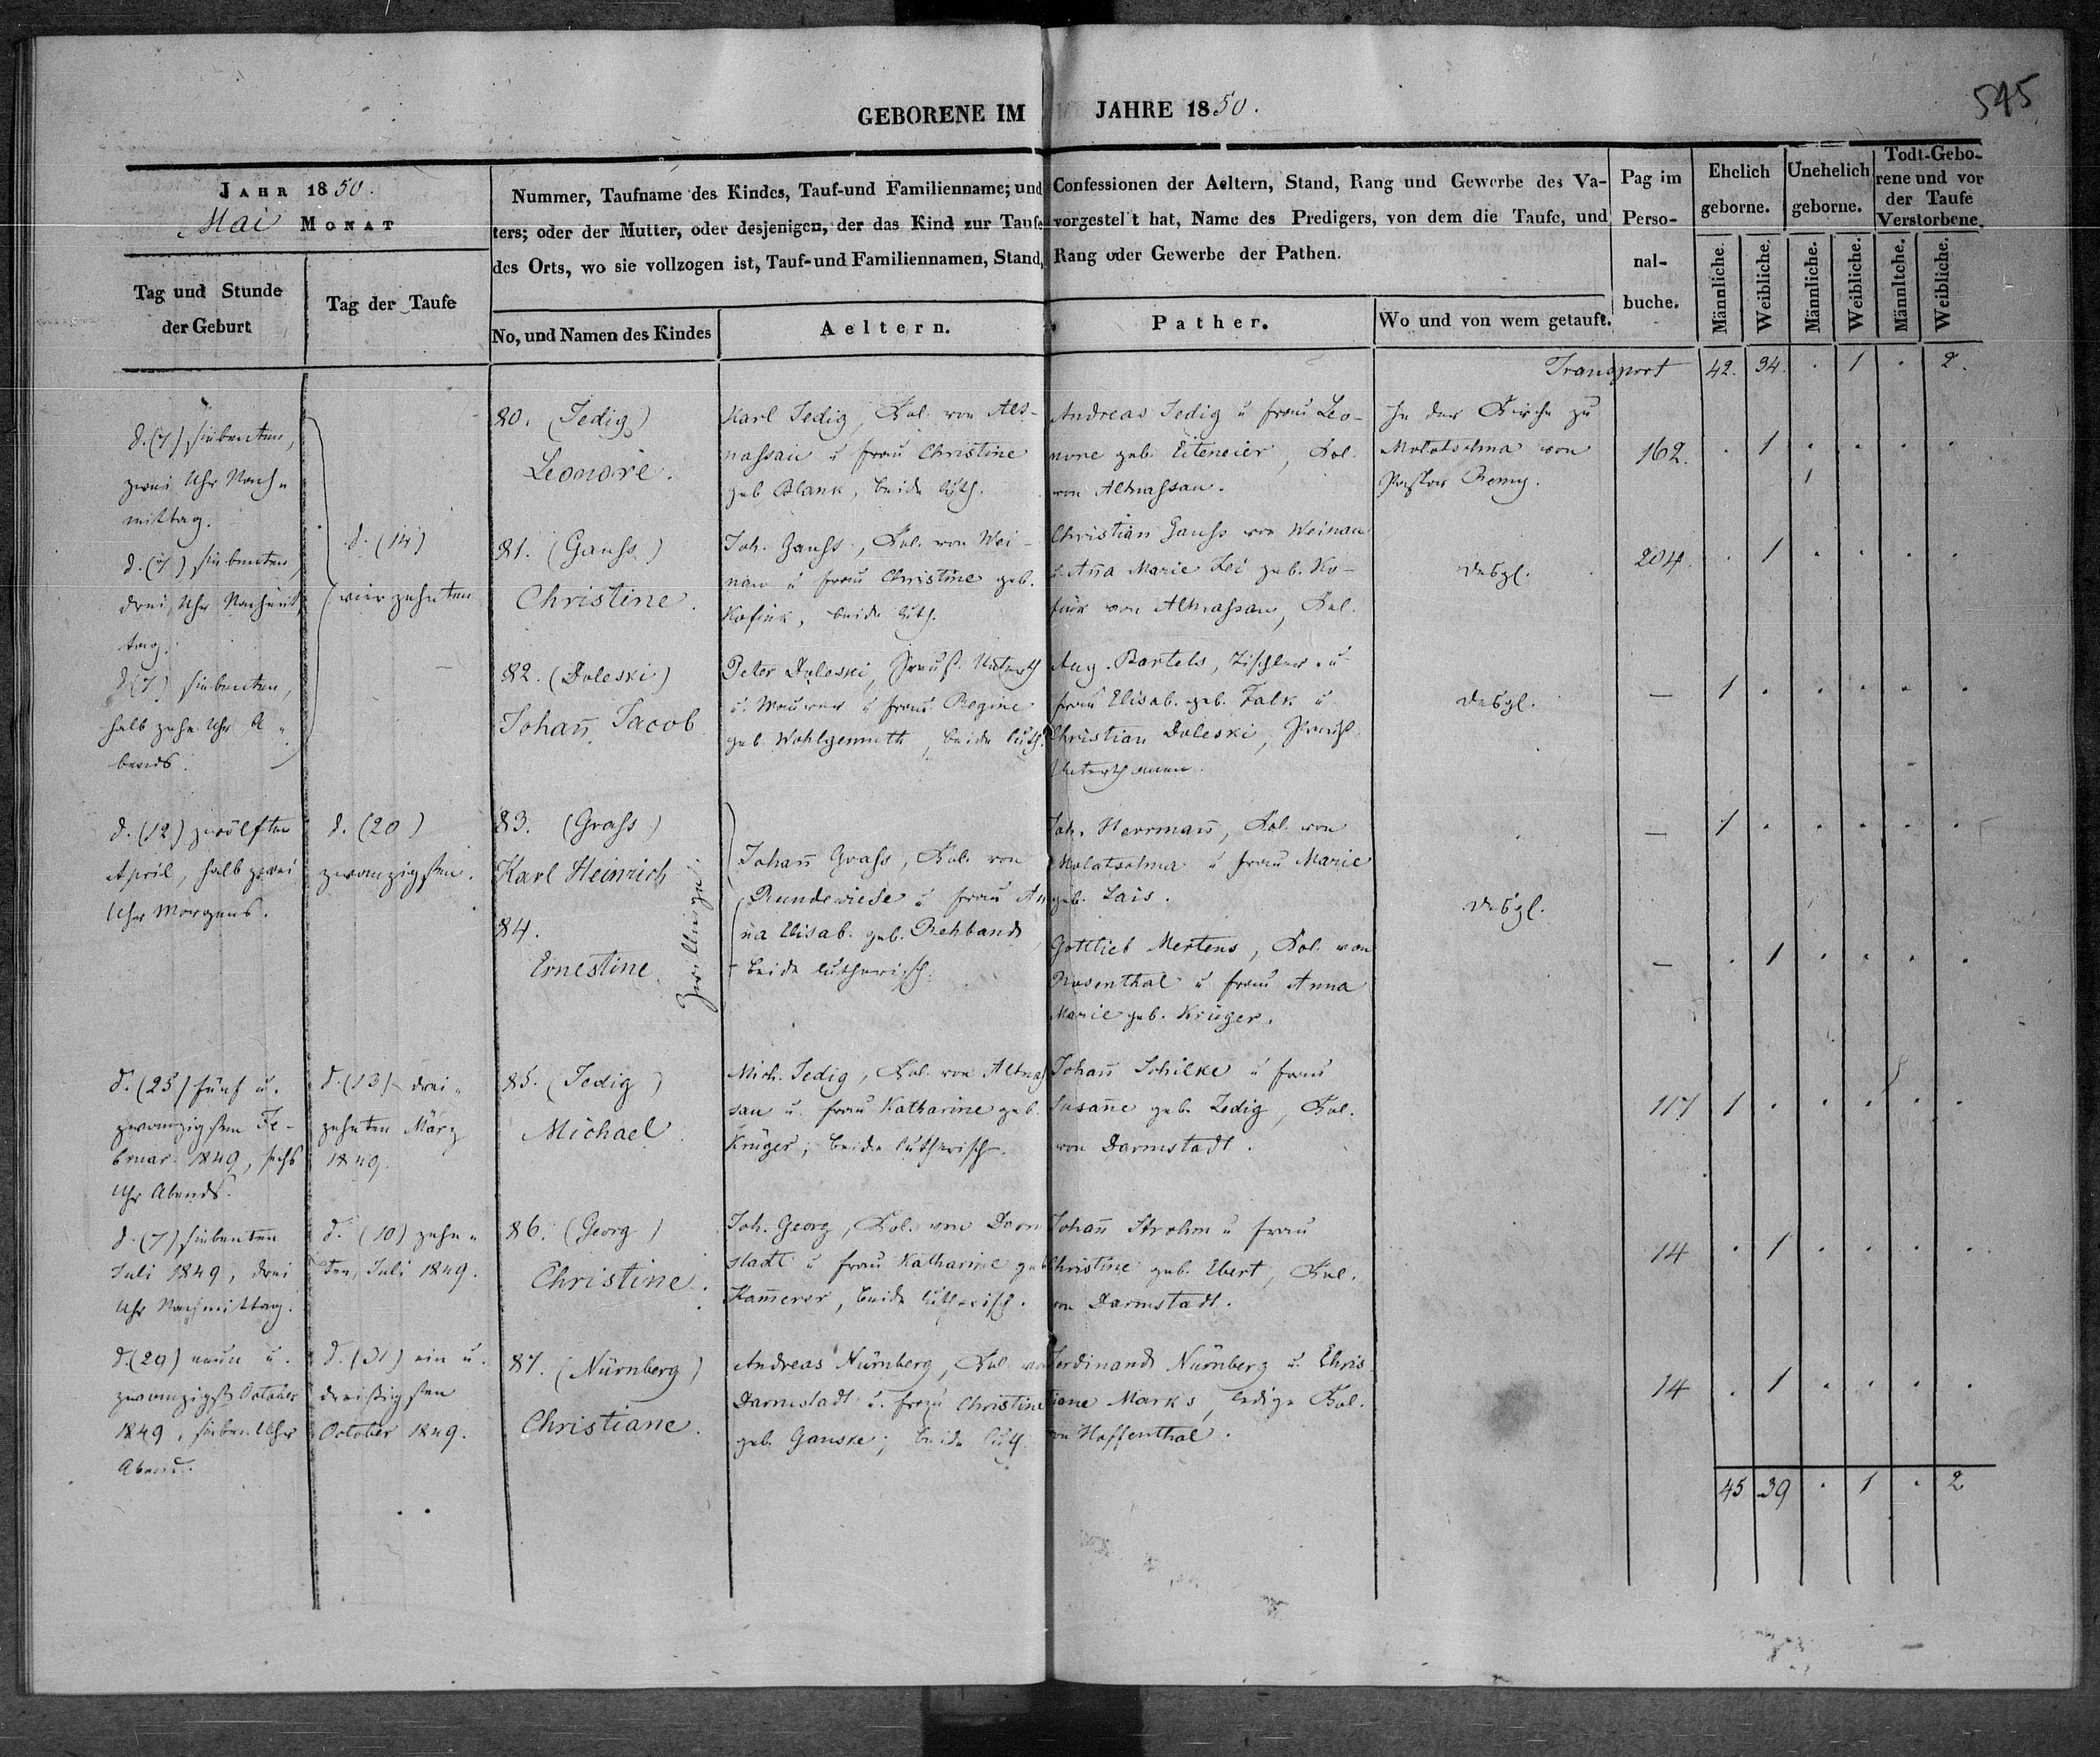 545
GEBORENE IM JAHRE 1850.
JAHR 1850.
Mai MONAT
Tag und Stunde
der Geburt
Tag der Taufe
Nummer, Taufname des Kindes, Tauf-und Familienname; und Confessionen der Aeltern, Stand, Rang und Gewerbe des Va-
ters; oder der Mutter, oder desjenigen, der das Kind zur Taufe vorgestel't hat, Name des Predigers, von dem die Taufe, und
des Orts, wo sie vollzogen ist, Tauf-und Familiennamen, Stand, Rang oder Gewerbe der Pathen.
No, und Namen des Kindes
Aeltern.
Pather.
Wo und von wem getauft.
Pag im
Perso-
nal-
buche.
Ehelich
geborne.
Unehelich
geborne.
Todt-Gebo-
rene und vor
der Taufe
Verstorbene.
Männliche.
Weibliche.
Männliche.
Weibliche.
Männltche.
Weibliche.
Transport 42. 34. · 1 · 2.
d. (7) siebenten,
zwei Uhr Nach-
mittag.
d. (14)
vierzehnten
80. (Jedig)
Leonore.
Karl Jedig, Kol. von Alt-
nassau u frau Christine
geb Blank, beide luth.
Andreas Jedig u frau Leo-
nore geb. Eiteneier, Kol.
von Altnassau.
In der Kirche zu
Molotschna von
Pastor
162. · 1 · · · ·
d. (7) siebenten,
drei Uhr Nachmit
tag.
81. (Gauss)
Christine.
Joh. Gauss, Kol. von Wei-
nau u frau Christine geb.
Kofink, beide luth.
Christian Gauss von Weinau
u. Anna Marie geb. Ko-
fink von Altnassau, Kol.
desgl.
204. · 1 · · · ·
d (7) siebenten,
halb zehn Uhr A-
bends.
82. (Doleski)
Johann Jacob
Peter Doleski, Preuss. Unterth
u. Maurer u frau Regine
geb. Wohlgemuth, beide luth.
Aug. Bartels, Tischler u
frau Elisab. geb. Falk u
Christian Doleski, Preuss
Unterthanen.
desgl.
— 1 · · · · ·
d. (12) zwölften
April, halb zwei
Uhr Morgens.
d. (20)
zwanzigsten.
83. (Grass)
Karl Heinrich
84.
Ernestine
Zwillinge.
Johann Grass, Kol. von
Rundewiese u frau An
na Elisab. geb. Rehband,
beide lutherisch.
Joh. Herrmann, Kol. von
Molotschna u frau Marie
geb. Lais.
Gottlieb Mertens, Kol. von
Rosenthal u frau Anna
Marie geb. Krüger.
desgl.
— 1 · · · · ·
— · 1 · · · ·
d. (25) fünf u.
zwanzigsten Fe-
bruar 1849, sechs
Uhr Abends.
d. (13) drei-
zehnten März
1849.
85. (Jedig)
Michael
Mich. Jedig, Kol. von Altnas
sau u. frau Katharine geb.
Krüger; beide lutherisch.
Johann Schilke u frau
Susanne geb. Jedig, Kol.
von Darmstadt.
117 1 · · · · ·
d. (7) siebenten
Juli 1849, drei
Uhr Nachmittag.
d. (10) zehn-
ten, Juli 1849.
86. (Georg)
Christine.
Joh. Georg, Kol. von Darm
stadt u frau Katharine geb
Kamerer, beide lutherisch.
Johann Strohm u frau
Christine geb. Ebert, Kol.
von Darmstadt.
14 · 1 · · · ·
d. (29) neun u.
zwanzigst. October
1849, sieben Uhr
Abend.
d. (31) ein u.
dreissigsten
October 1849.
87. (Nürnberg)
Christiane.
Andreas Nürnberg, Kol. von
Darmstadt u. frau Christine
geb. Ganske; beide luth
Ferdinand Nürnberg u. Chris
tiane Marks, ledige Kol.
von Hoffenthal.
14 · 1 · · · ·
45 39 · 1 · 2